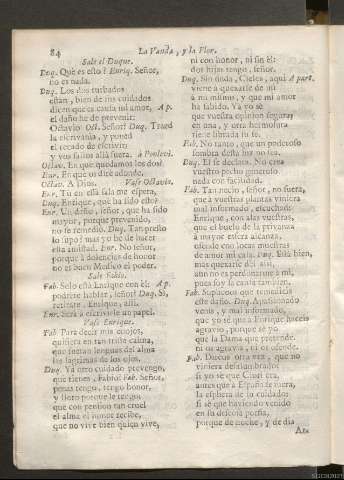 84 La Vanda, y la Flor.
Sale el Duque.
Duq. Què es esto? Enriq. Señor,
no es nada.
Duq. Los dos turbados
estàn, bien de mis cuidados
dicen que es causa mi amor, Ap.
el daño he de prevenir:
Octavio. Oct. Señor? Duq. Traed
la escrivanía, y poned
el recado de escrivir;
y vos salíos allà fuera.
Octav. En què quedamos los dos?
Enr. En que os diré adonde.
Octav. A Dios. Vase Octavio.
Enr. Tù en esta sala me espera.
Duq. Enrique, què ha sido esto?
Enr. Un disgusto, señor, que ha sido
mayor, porque prevenido,
no se remedió. Duq. Tan presto
lo supo? mas yo he de hacer
esta amistad. Enr. No, señor,
porque à dolencias de honor
no es buen Medico el poder.
Sale Fabio.
Fab. Solo està Enrique con èl: Ap.
podréte hablar, señor? Duq. Sí,
retirate, Enrique, allì.
Enr. Serà à escrivirle un papel.
Vase Enrique.
Fab. Para decir mis enojos,
quisiera en tan triste calma,
que fueran lenguas del alma
las lagrimas de los ojos.
Duq. Ya otro cuidado prevengo,
que tienes, Fabio? Fab. Señor,
penas tengo, tengo honor,
y lloro porque le tengo;
que con pension tan cruel
el alma el honor recibe,
que no vive bien quien vive,
ni con honor, ni sin èl:
dos hijas tengo, señor.
Duq. Sin duda, Cielos, aqui A part.
viene à quexarse de mi
à mi mismo, y que mi amor
ha sabido. Ya yo sè
que vuestra opinion segura,
en una, y otra hermosura
tiene librada su fè.
Fab. No tanto, que un poderoso
sombra desta luz no sea.
Duq. El se declara. No crea
vuestro pecho generoso
nada con facilidad.
Fab. Tan necio, señor, no fuera,
que à vuestras plantas viniera
mal informado, escuchad:
Enrique, con alas vuestras,
que el buelo de la privanza
à mayor esfera alcanza,
ofende con locas muestras
de amor mi casa. Duq. Està bien,
mas quexarse del así,
aun no es perdonarme à mi,
pues soy la causa tambien.
Fab. Suplicoos que remedieis
este daño. Duq. Apasionado
venis, y mal informado,
que yo sè que à Enrique haceis
agravio, porque sè yo
que la Dama que pretende,
ni os agravia, ni os ofende.
Fab. Ducus otra vez, que no
viniera deslumbrado:
si yo sè que Clori era,
antes que à España se fuera,
la esphera de su cuidado:
si sè que haviendo venido
en su delicia porfia,
porque de noche, y de dia